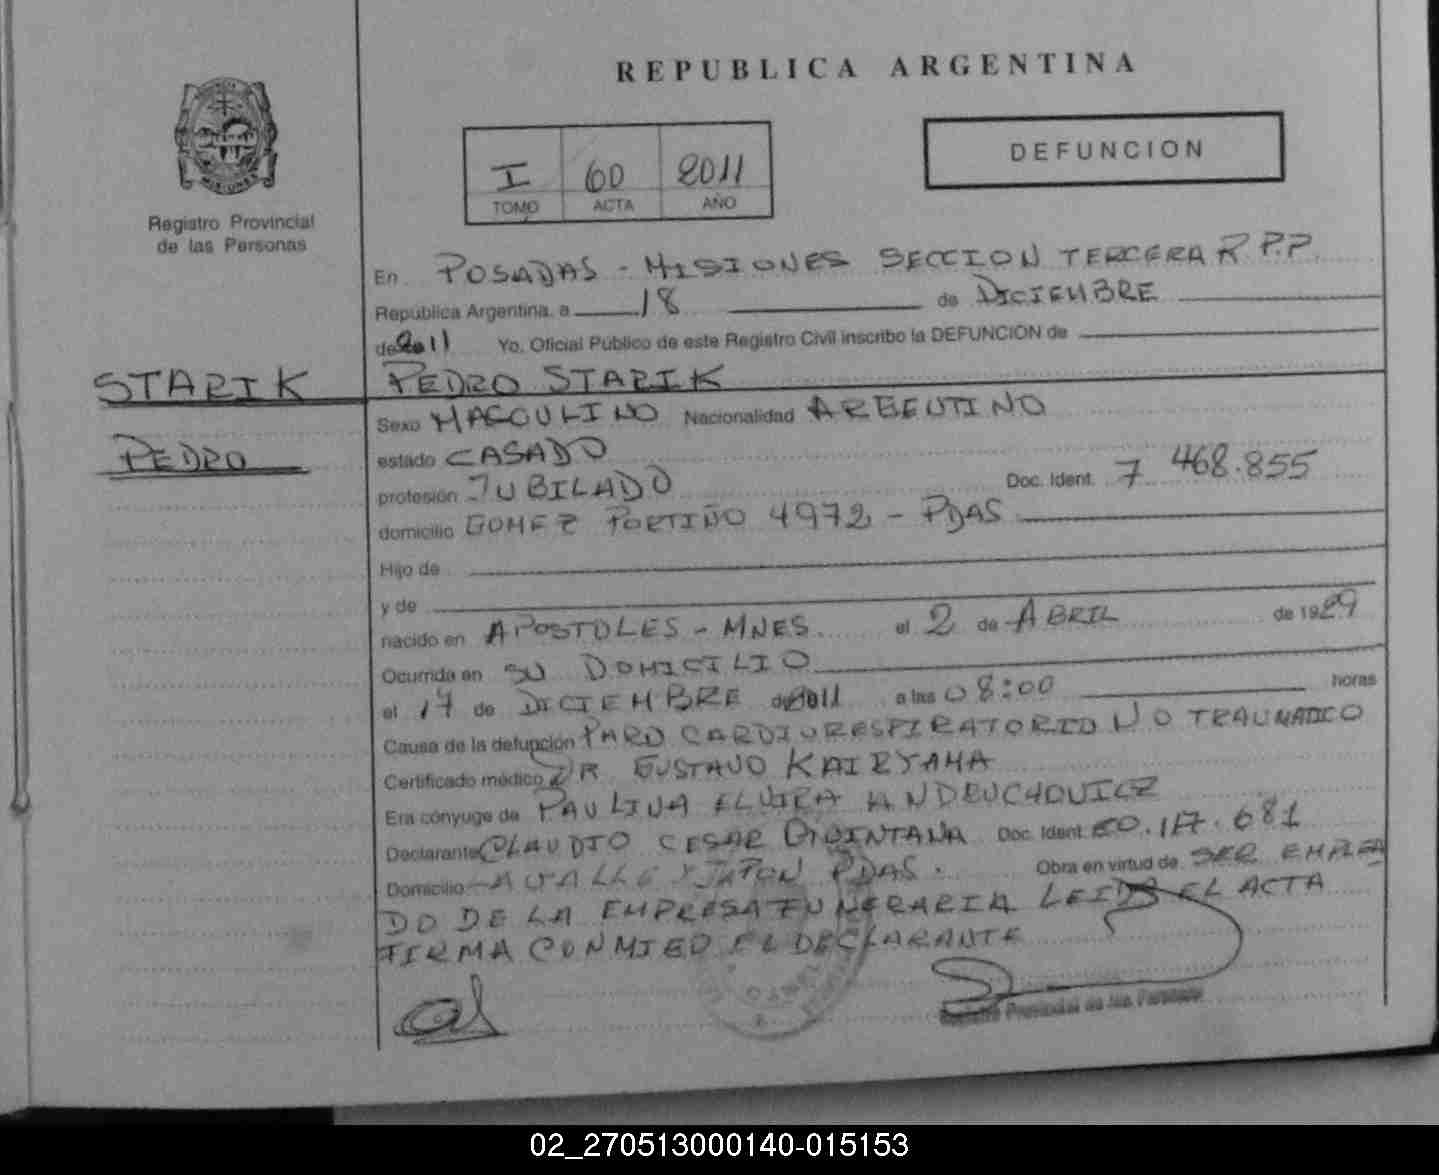 REPUBLICA ARGENTINA
MISIONES
Registro Provincial
de las Personas
I 60 2011
TOMO ACTA AÑO
DEFUNCION
En POSADAS - MISIONES SECCION TERCERA R.P.P.
República Argentina, a 18 de DICIEMBRE
de 2011 Yo, Oficial Público de este Registro Civil inscribo la DEFUNCION de
STARIK
PEDRO
PEDRO STARIK
Sexo MASCULINO Nacionalidad ARGENTINO
estado CASADO
profesión JUBILADO Doc. Ident. 7 468.855
domicilio GOMEZ PORTIÑO 4972 - PDAS
Hijo de
y de
nacido en APOSTOLES - MNES. el 2 de ABRIL de 1929
Ocurrida en SU DOMICILIO
el 17 de DICIEMBRE de 2011 a las 08:00 horas
Causa de la defunción PARO CARDIORESPIRATORIO NO TRAUMATICO
Certificado médico DR GUSTAVO
Era cónyuge de PAULINA ELVIRA
Declarante CLAUDIO CESAR QUINTANA Doc. Ident. 20.117.681
Domicilio AV. LLE Y JAPON PDAS. Obra en virtud de SER EMPLEA
DO DE LA EMPRESA FUNERARIA LEIDA EL ACTA
FIRMA CONMIGO EL DECLARANTE
Registro Provincial de las Personas
02_270513000140-015153